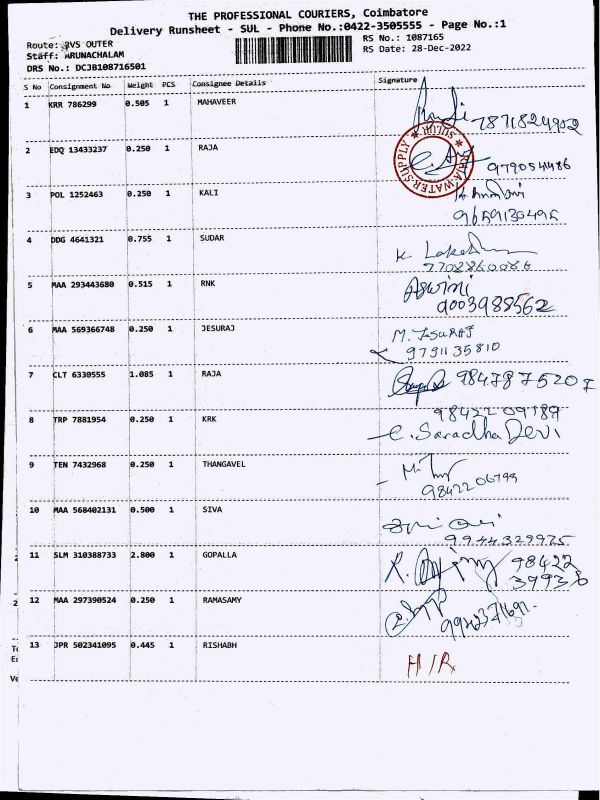 THE PROFESSIONAL COURIERS, Coimbatore
Delivery Runsheet - SUL - Phone No.:0422-3505555 - Page No.:1
Route: BVS OUTER
RS No.: I087165
Staff: ARUNACHALAM
RS Date: 28-Dec-2022
DRS No.: DCJB108716501
S No Consignment No Weight PCS Consignee Details Signature
1 KRR 786299 0.505 1 MAHAVEER
7871824902
2 EDQ 13433237 0.250 1 RAJA
WATER SUPPLY
SULUR
979054486
3 POL 1252463 0.250 1 KALI
9659130495
4 DDG 4641321 0.755 1 SUDAR
7708860086
5 MAA 293443680 0.515 1 RNK Aswini
9003988562
6 MAA 569366748 0.250 1 JESURAJ M. JESURAJ
9791135810
7 CLT 6330555 1.085 1 RAJA 9847875207
9842209789
8 TRP 7881954 0.250 1 KRK C. Saradha Devi
9 TEN 7432968 0.250 1 THANGAVEL
9842206799
10 MAA 568402131 0.500 1 SIVA
9944329975
11 SLM 310388733 2.800 1 GOPALLA 98422
39938
12 MAA 297390524 0.250 1 RAMASAMY
13 JPR 502341095 0.445 1 RISHABH H/R